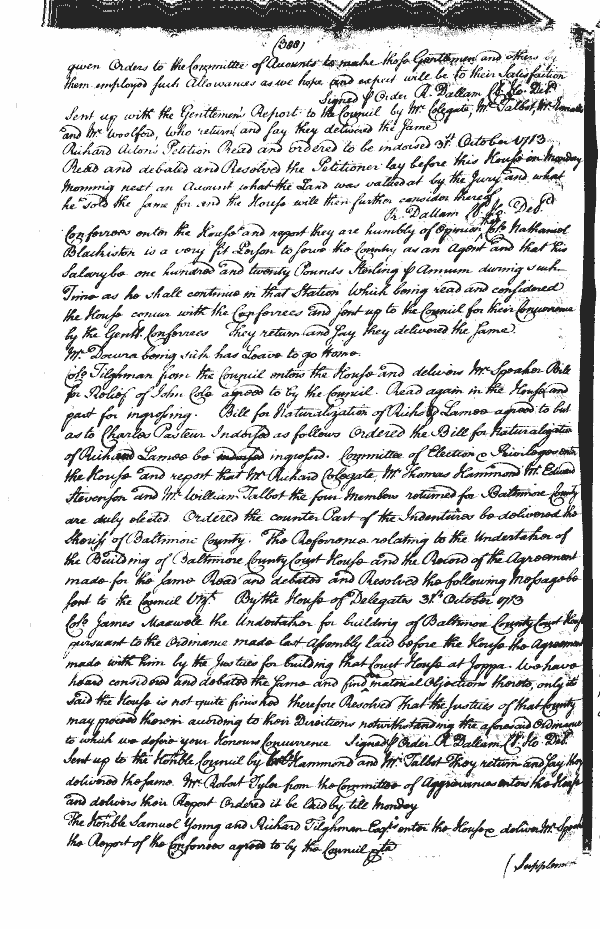 (388)
given Orders to the Committee of Accounts to make those Gentlemen and others by
them employed such Allowances as we hope and expect will be to their Satisfaction
Signed p Order R. Dallam Cl. Ho. Del.
Sent up with the Gentlemen's Report to the Council by Mr. Colegate, Mr. Talbot, Mr.
and Mr. Woolford, who return and say they delivered the same
Richard Petition Read and ordered to be indorsed 31st October 1713
Read and debated and Resolved the Petitioner lay before this House on Monday
Morning next an Account what the Land was valued at by the Jury and what
he sold the same for and the House will then further consider thereof
R. Dallam Cl. Ho. Del.
Conferrees enter the House and report they are humbly of Opinion that Colo. Nathaniel
Blackiston is a very fit Person to serve the Country as an Agent and that his
Salary be one hundred and twenty Pounds Sterling p Annum during such
Time as he shall continue in that Station Which being read and considered
the House concur with the Conferrees and sent up to the Council for their Concurrence
by the Gentl. Conferrees They return and say they delivered the same.
Mr. being sick has Leave to go Home.
Colo. Tilghman from the Council enters the House and delivers Mr. Speaker Bill
for Relief of John Cole agreed to by the Council. Read again in the House and
past for ingrossing. Bill for Naturalization of Richd. Lamee agreed to but
as to Charles Pasteur Indorsed as follows Ordered the Bill for Naturalization
of Richard Lamee be ingrossed. Committee of Election & Priviledges enter
the House and report that Mr. Richard Colegate, Mr. Thomas Hammond Mr. Edward
Stevenson and Mr. William Talbot the four Members returned for Baltimore County
are duly elected. Ordered the counter Part of the Indentures be delivered the
Sheriff of Baltimore County. The Reference relating to the Undertaker of
the Building of Baltimore County Court House and the Record of the Agreement
made for the same Read and debated and Resolved the following Message be
sent to the Council Vizt. By the House of Delegates 31st October 1713
Colo. James Maxwell the Undertaker for building of Baltimore County Court House
pursuant to the Ordinance made last Assembly laid before the House the Agreement
made with him by the Justices for building that Court House at Joppa. We have
heard considered and debated the same and find material Objections thereto, only it
said the House is not quite finished therefore Resolved That the Justices of that County
may proceed therein according to their Directions notwithstanding the aforesaid Ordinance
to which we desire your Honours Concurrence Signed p Order R. Dallam Cl. Ho. Del.
Sent up to the Honble Council by Hammond and Mr. Talbot They return and say they
delivered the same. Mr. Robert Tyler from the Committee of Aggrievances enters the House
and delivers their Report Ordered it be laid by till Monday
The Honble Samuel Young and Richard Tilghman Esqrs. enter the House & deliver Mr. Speaker
the Report of the Conferrees agreed to by the Council
(Supplement